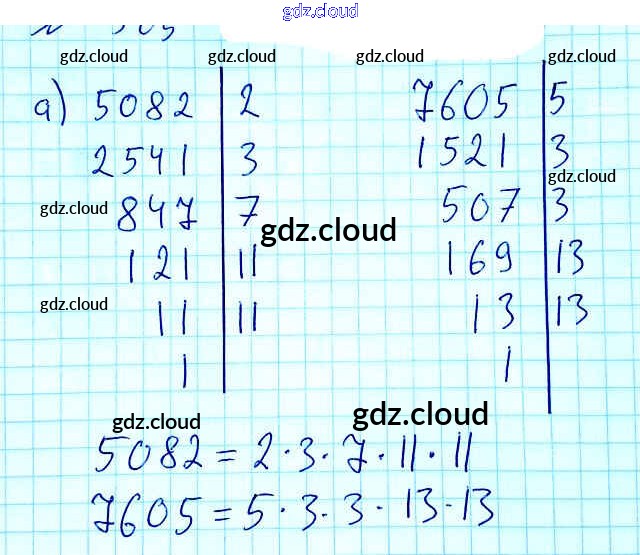 gdz.cloud
№ 305
gdz.cloud gdz.cloud gdz.cloud gdz.cloud
а) 5082 | 2 7605 | 5
2541 | 3 1521 | 3
gdz.cloud
gdz.cloud 847 | 7 507 | 3
gdz.cloud
121 | 11 169 | 13
gdz.cloud 11 | 11 13 | 13
1 1
gdz.cloud gdz.cloud
5082 = 2 · 3 · 7 · 11 · 11
7605 = 5 · 3 · 3 · 13 · 13